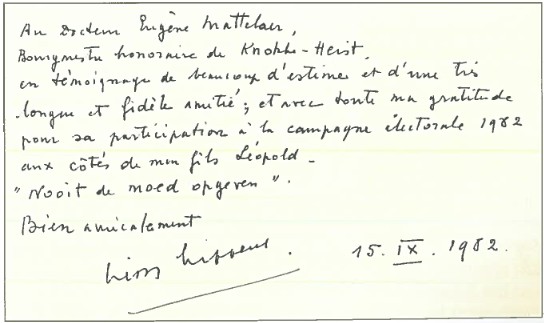 Au Docteur Eugène Mattelaer,
Bourgmestre honoraire de Knokke-Heist,
en témoignage de beaucoup d'estime et d'une très
longue et fidèle amitié ; et avec toute ma gratitude
pour sa participation à la campagne électorale 1982
aux côtés de mon fils Léopold -
"Nooit de moed opgeven".
Bien amicalement
Léon Lippens.
15. IX. 1982.